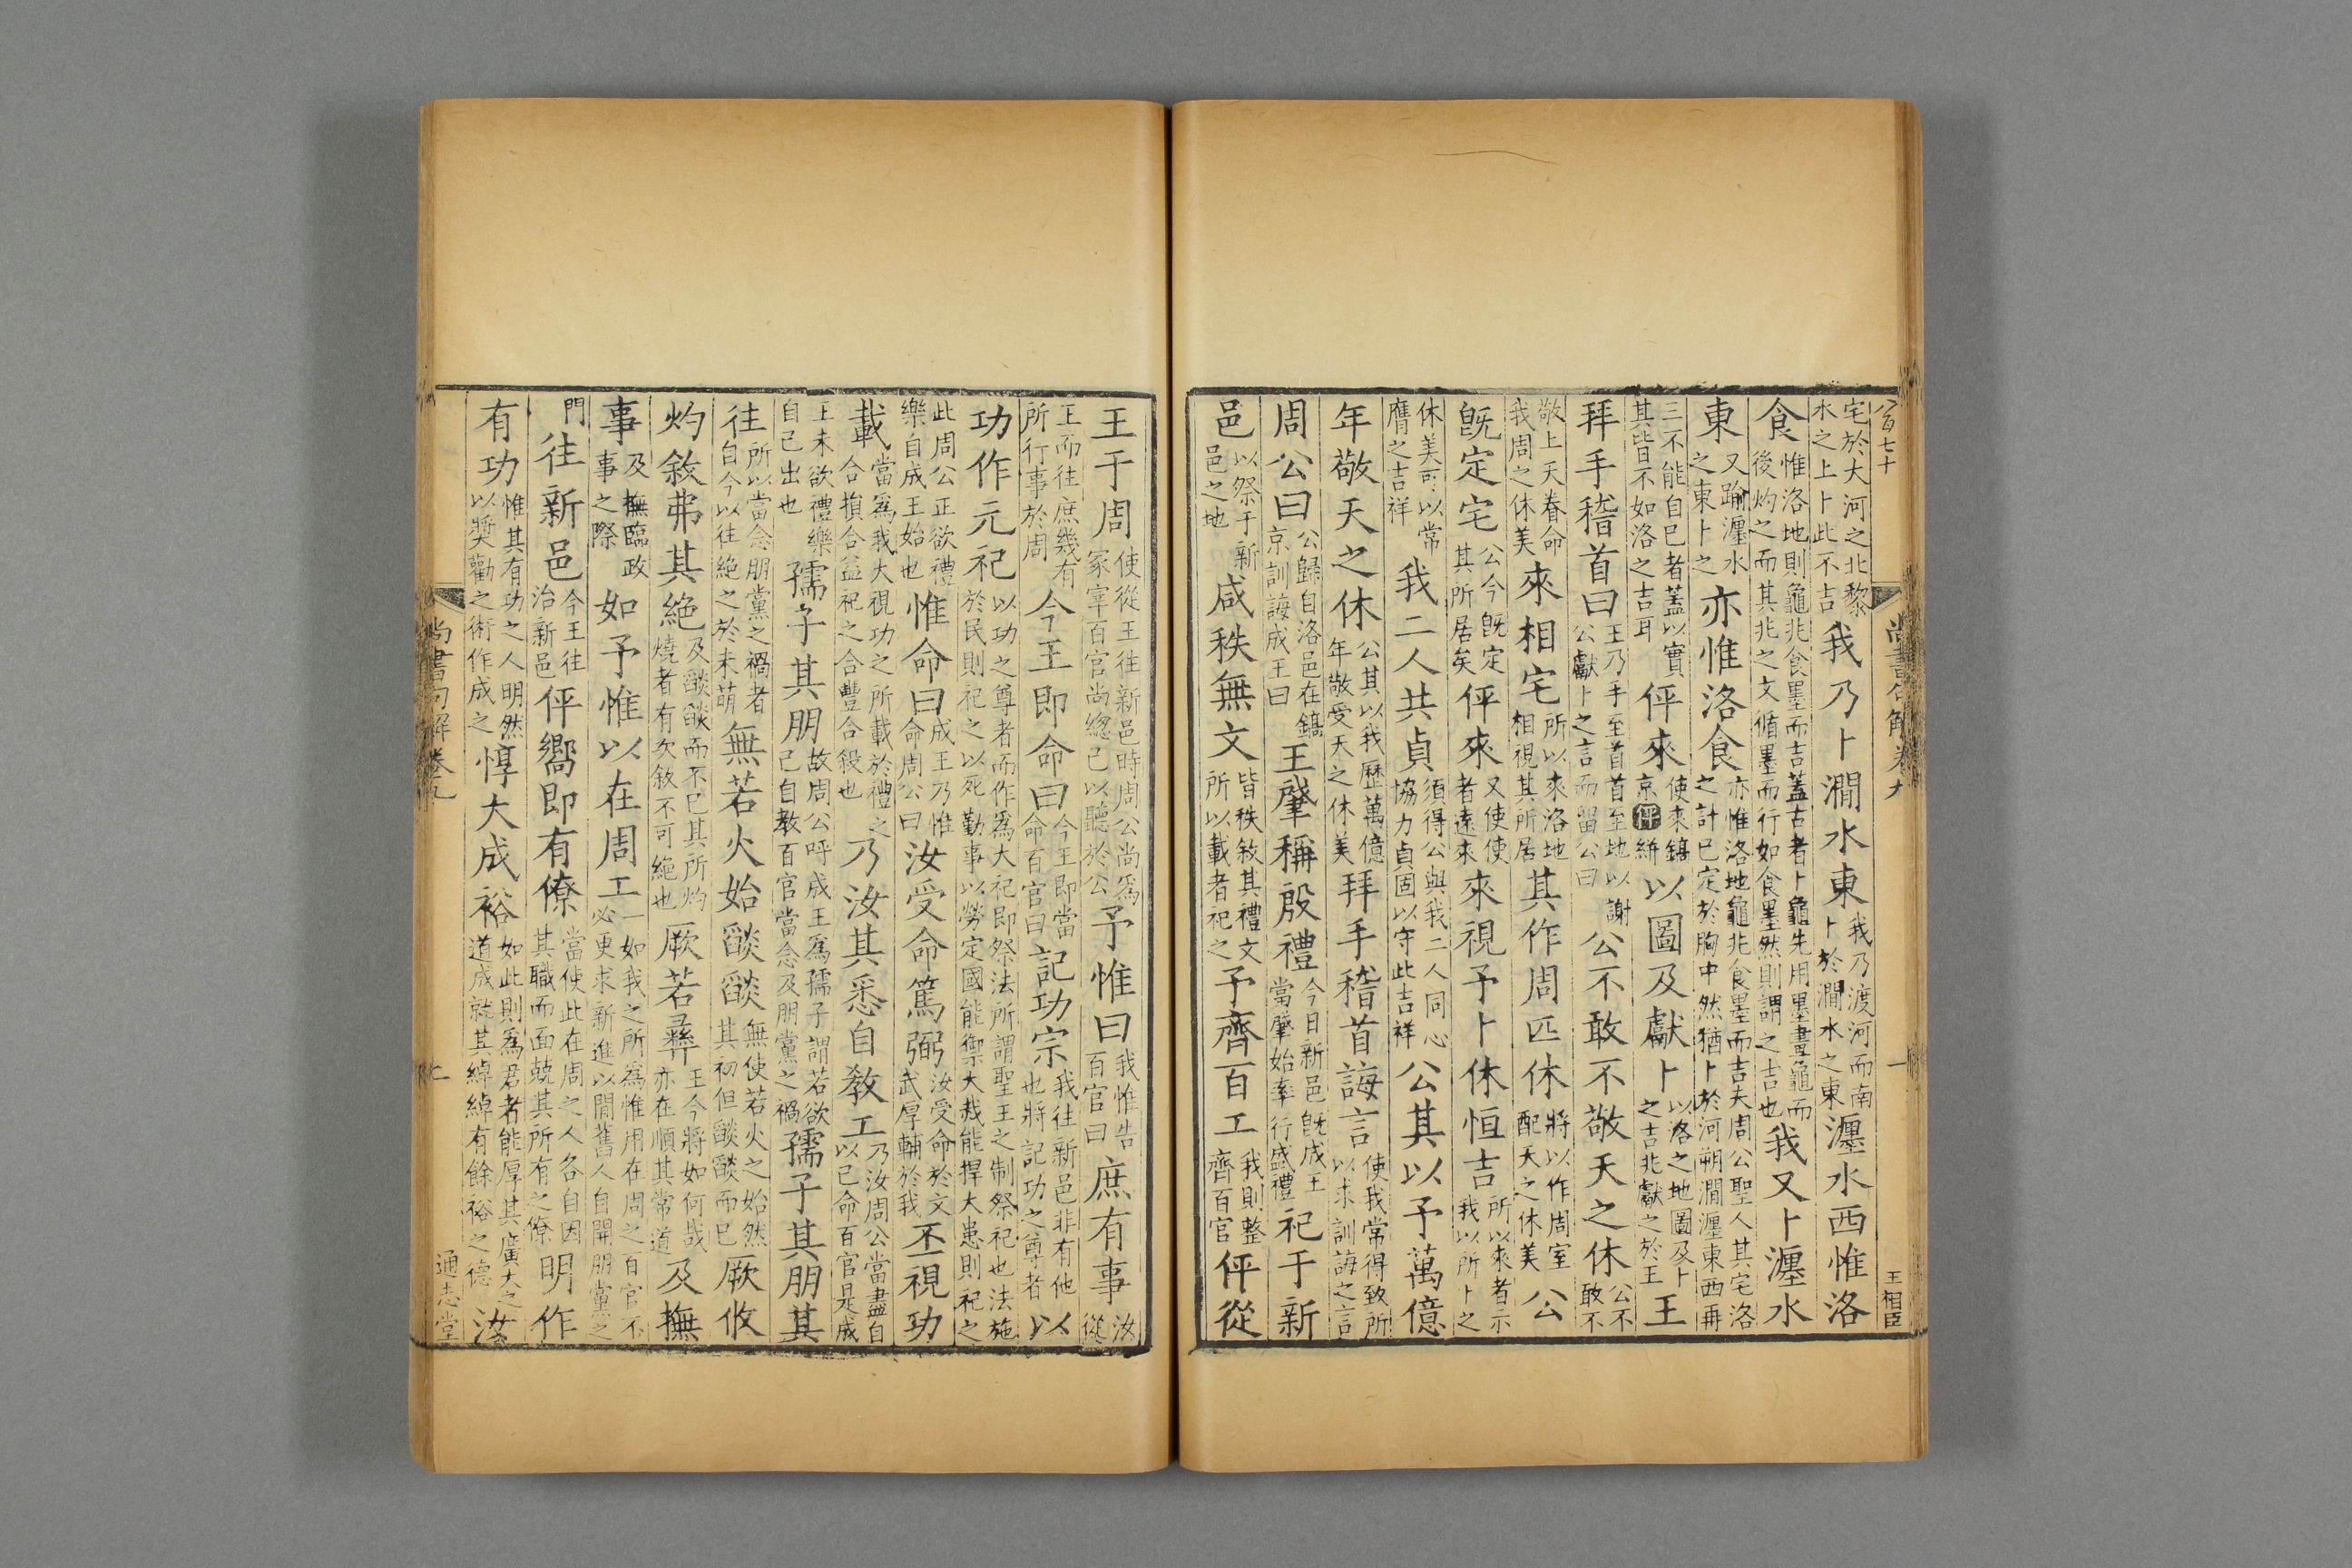 八百七十
尚書句解卷九
一
王相臣
宅於大河之北黎水之上卜此不吉我乃卜澗水東我乃渡河而南卜於澗水之東瀍水西惟洛
食惟洛地則龜兆食墨而吉蓋古者卜龜先用墨畫龜而後灼之而其兆之文循墨而行如食墨然則謂之吉也我又卜瀍水
東又踰瀍水之東卜之亦惟洛食亦惟洛地龜兆食墨而吉夫周公聖人其宅洛之計已定於胸中然猶卜於河朔澗瀍東西再
三不能自已者蓋以實其皆不如洛之吉耳伻來使來鎬京伻絣以圖及獻卜以洛之地圖及卜之吉兆獻之於王王
拜手稽首曰王乃手至首首至地以謝公獻卜之言而留公曰公不敢不敬天之休公不敢不
敬上天眷命我周之休美來相宅所以來洛地相視其所居其作周匹休將以作周室配天之休美公
既定宅公今既定其所居矣伻來又使使者遠來來視予卜休恒吉所以來者示我以所卜之
休美可以常膺之吉祥我二人共貞須得公與我二人同心協力貞固以守此吉祥公其以予萬億
年敬天之休公其以我歷萬億年敬受天之休美拜手稽首誨言使我常得致所以求訓誨之言
周公曰公歸自洛邑在鎬京訓誨成王曰王肇稱殷禮今日新邑既成王當肇始率行盛禮祀于新
邑以祭于新邑之地咸秩無文皆秩敘其禮文所以載者祀之予齊百工我則整齊百官伻從
王于周使從王往新邑時周公尚爲冢宰百官尚緫己以聽於公予惟曰我惟告百官曰庶有事汝從
王而往庶幾有所行事於周今王即命曰今王即當命百官曰記功宗我往新邑非有他也將記功之尊者以
功作元祀以功之尊者而作爲大祀即祭法所謂聖王之制祭祀也法施於民則祀之以死勤事以勞定國能禦大烖能捍大患則祀之
此周公正欲禮樂自成王始也惟命曰成王乃惟命周公曰汝受命篤弼汝受命於文武厚輔於我丕視功
載當爲我大視功之所載於禮之合損合益祀之合豐合殺也乃汝其悉自教工乃汝周公當盡自以已命百官是成
王未欲禮樂自己出也孺子其朋故周公呼成王爲孺子謂若欲己自教百官當念及朋黨之禍孺子其朋其
往所以當念朋黨之禍者自今以往絶之於未萌無若火始燄燄無使若火之始然其初但燄燄而已厥攸
灼敘弗其絶及燄燄而不已其所灼燒者有次敘不可絶也厥若彝王今將如何哉亦在順其常道及撫
事及撫臨政事之際如予惟以在周工一如我之所爲惟用在周之百官不必更求新進以間舊人自開朋黨之
門往新邑今王往治新邑伻嚮即有僚當使此在周之人各自因其職而面兢其所有之僚明作
有功惟其有功之人明然以奬勸之術作成之惇大成裕如此則爲君者能厚其廣大之道成就其綽綽有餘裕之德汝
尚書句解卷九
通志堂